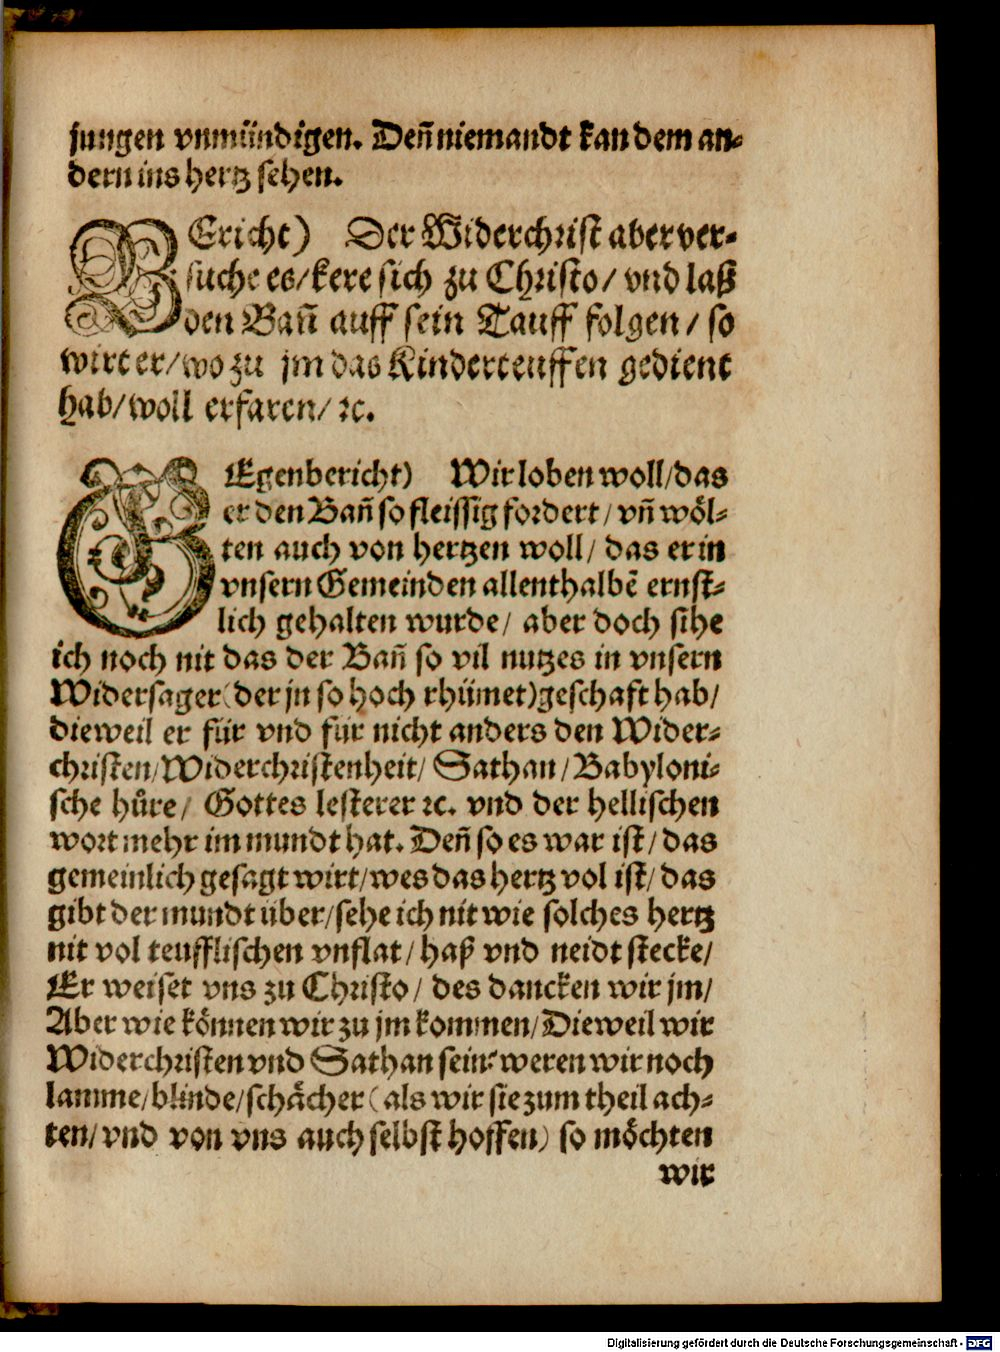 jungen vnmündigen. Deñ niemandt kan dem an-
dern ins hertz sehen.
BEricht) Der Widerchrist aber ver-
suche es/ kere sich zu Christo/ vnd laß
den Bañ auff sein Tauff folgen/ so
wirt er/ wo zu jm das Kinderteuffen gedient
hab/ woll erfaren/ ꝛc.
GEgenbericht) Wir loben woll/ das
er den Bañ so fleissig fordert/ vñ wöl-
ten auch von hertzen woll/ das er in
vnsern Gemeinden allenthalbẽ ernst-
lich gehalten wurde/ aber doch sihe
ich noch nit das der Bañ so vil nutzes in vnsern
Widersager (der jn so hoch rhümet) geschaft hab/
dieweil er für vnd für nicht anders den Wider-
christen/ Widerchristenheit/ Sathan/ Babyloni-
sche hůre/ Gottes lesterer ꝛc. vnd der hellischen
wort mehr im mundt hat. Deñ so es war ist/ das
gemeinlich gesagt wirt/ wes das hertz vol ist/ das
gibt der mundt über/ sehe ich nit wie solches hertz
nit vol teufflischen vnflat/ haß vnd neidt stecke/
Er weiset vns zu Christo/ des dancken wir jm/
Aber wie können wir zu jm kommen/ Dieweil wir
Widerchristen vnd Sathan sein? weren wir noch
lamme/ blinde/ schächer (als wir sie zum theil ach-
ten/ vnd von vns auch selbst hoffen) so möchten
wir
Digitalisierung gefördert durch die Deutsche Forschungsgemeinschaft - DFG